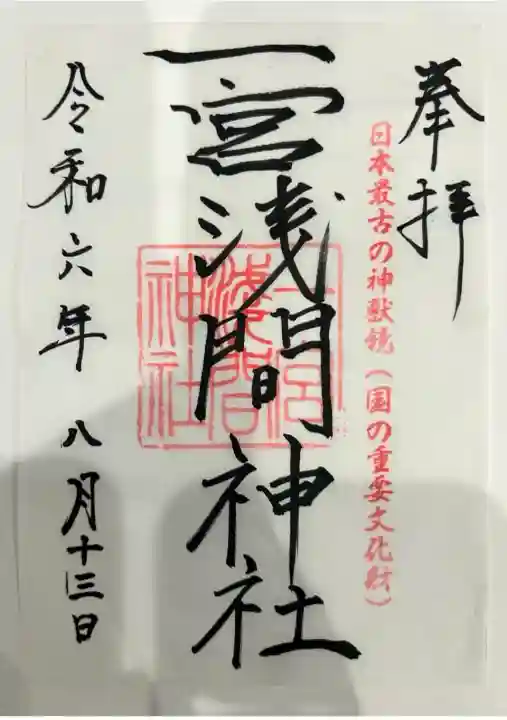 奉拝
日本最古の神獣鏡（国の重要文化財）
一宮浅間神社
一宮浅間神社
令和六年八月十三日